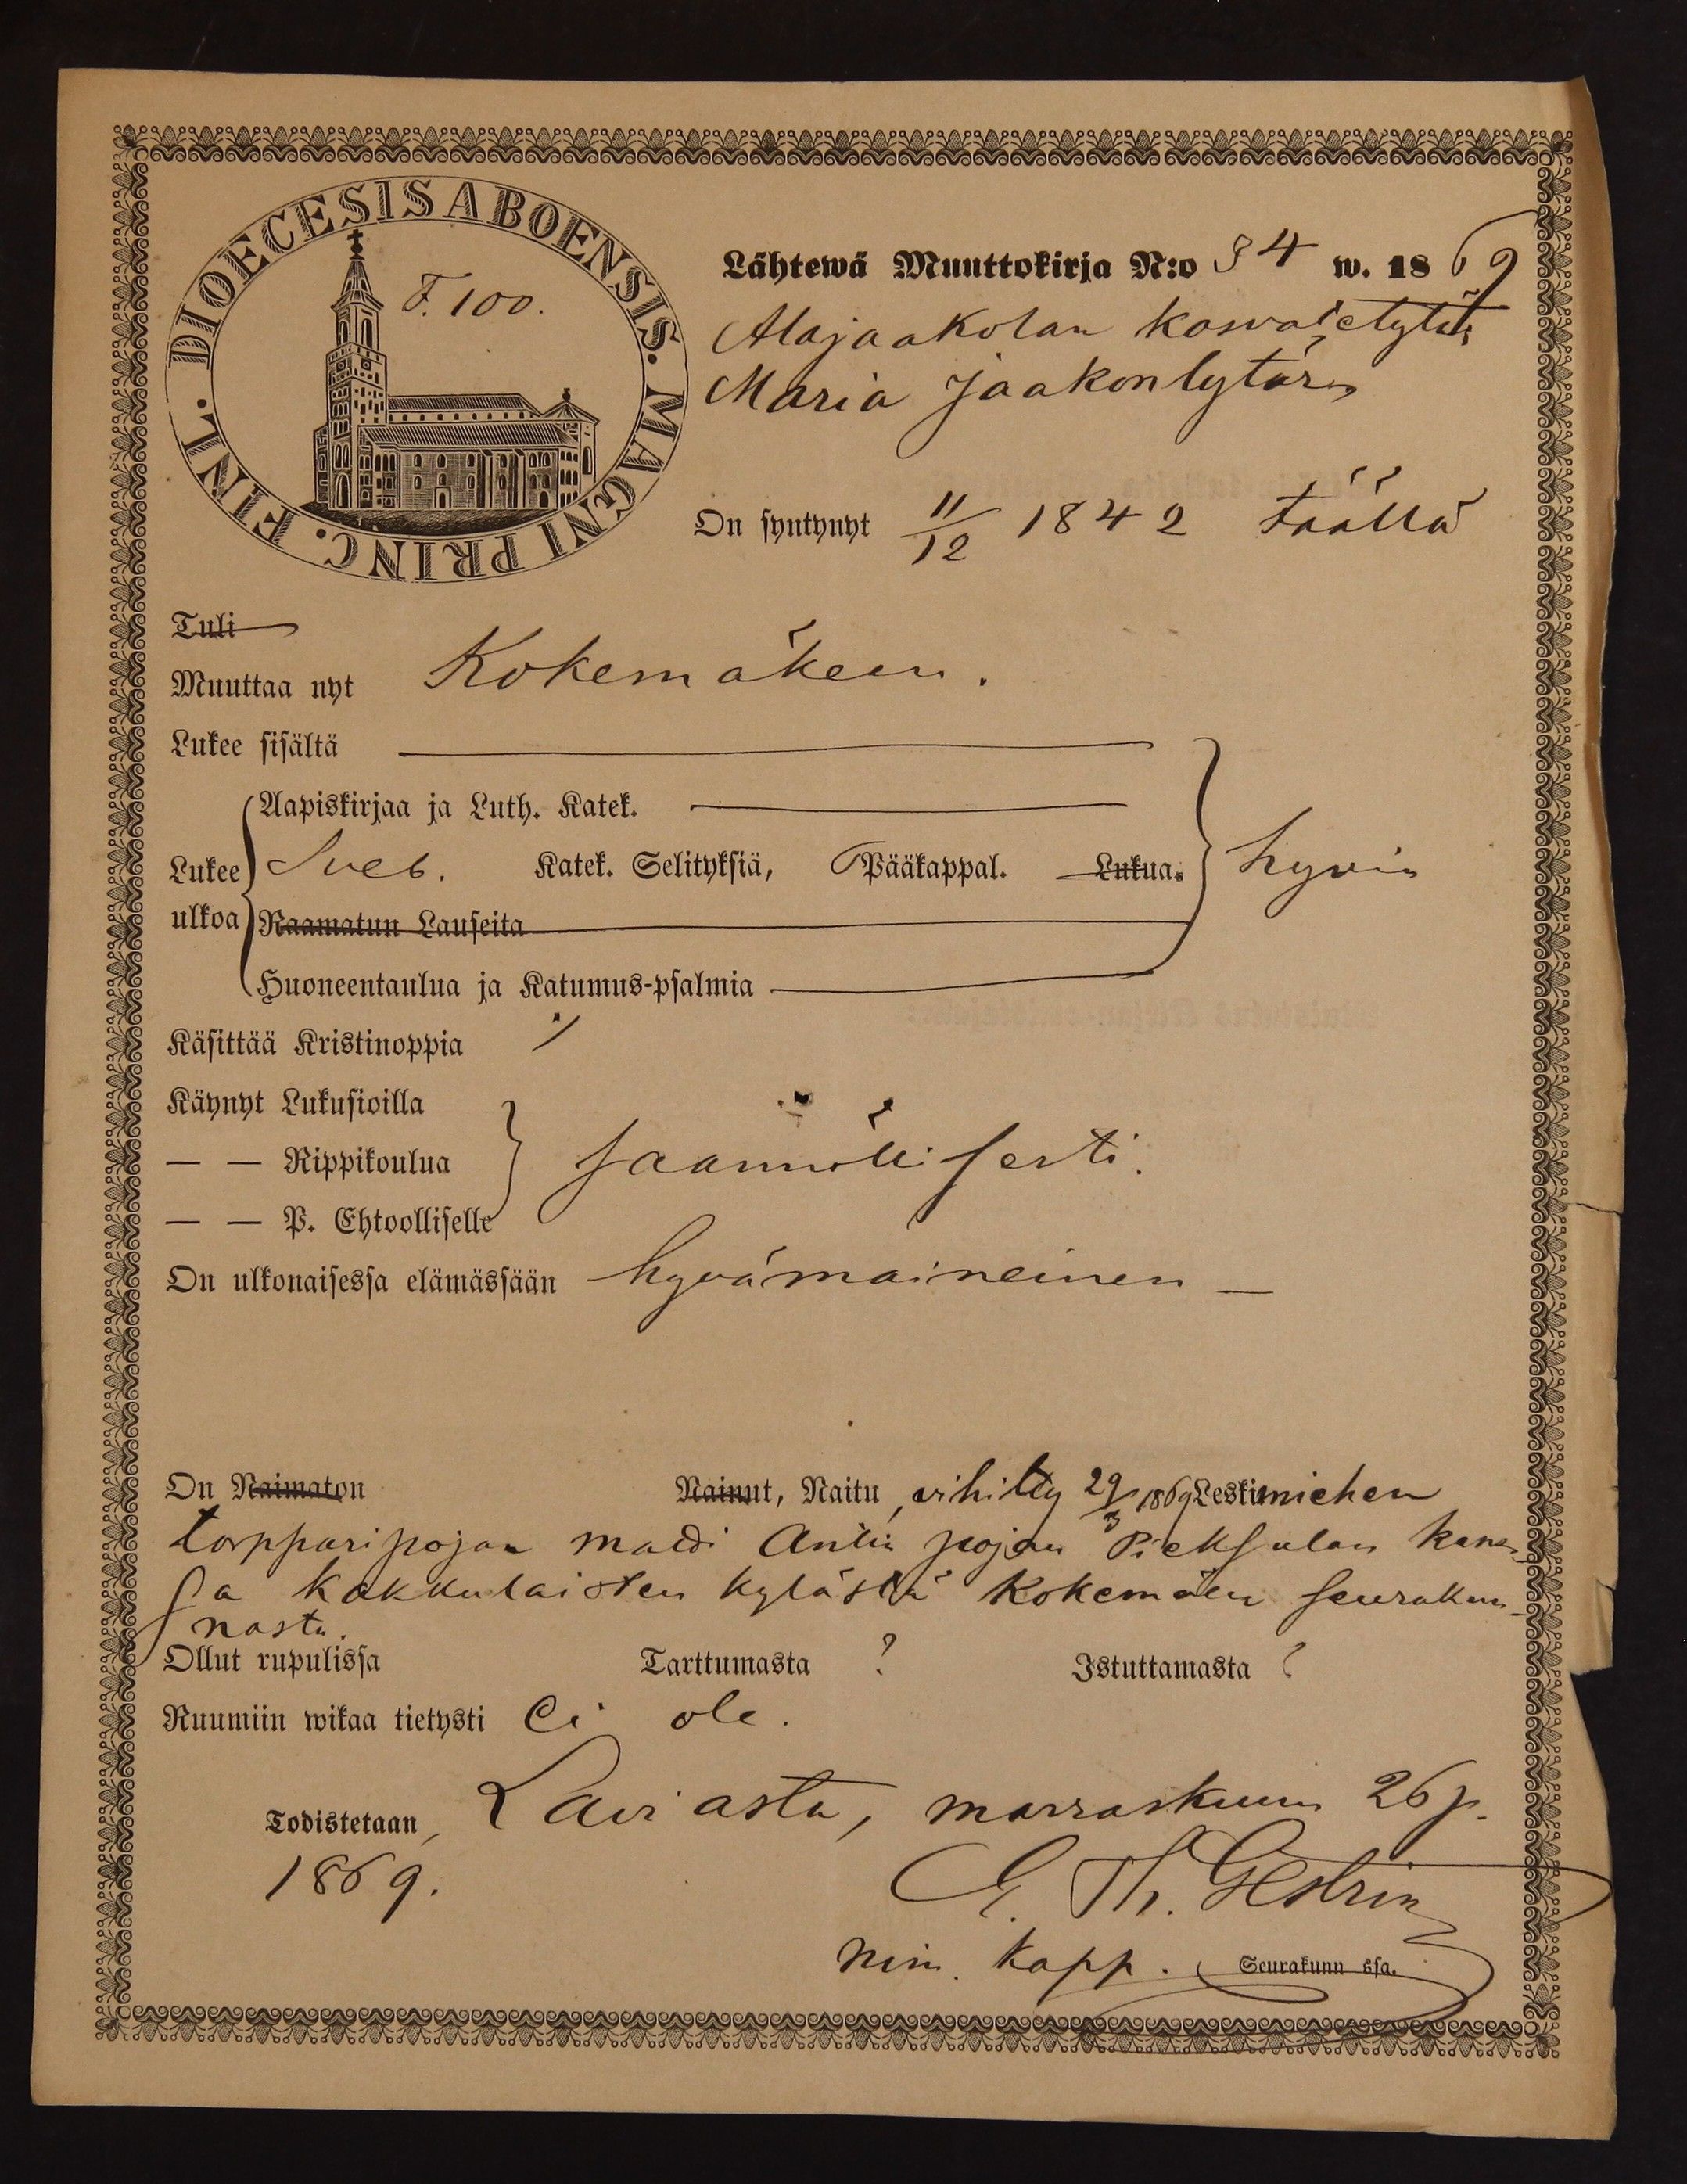 DIOECESIS ABOENSIS. MAGNI PRINC. FINL.
F. 100.
Lähtewä Muuttokirja N:o 34 w. 1869
Alajaakolan kasvatetytär
Maria Jaakontytär
On syntynyt 11/12 1842 täällä
Tuli
Muuttaa nyt Kokemäkeen.
Lukee sisältä
Aapiskirjaa ja Luth. Katek.
Lukee Sveb. Katek. Selityksiä, Pääkappal. Lukua. hyvin
ulkoa Raamatun Lauseita
Huoneentaulua ja Katumus-psalmia
Käsittää Kristinoppia
Käynyt Lukusioilla
— — Rippikoulua säännöllisesti.
— — P. Ehtoolliselle
On ulkonaisessa elämässään hyvämaineinen —
On Naimaton Nainut, Naitu, vihitty 29/3 1869 Leskimiehen
torpparipojan Matti Antin pojan Pieksulan kans-
sa Kakkulaisten kylästä Kokemäen seurakun-
nasta.
Ollut rupulissa Tarttumasta ? Istuttamasta ?
Ruumiin wikaa tietysti Ei ole.
Todistetaan, Laviasta, marraskuun 26 p.
1869. G. Th. Gestrin
nim. Kapp. Seurakunn ssa.